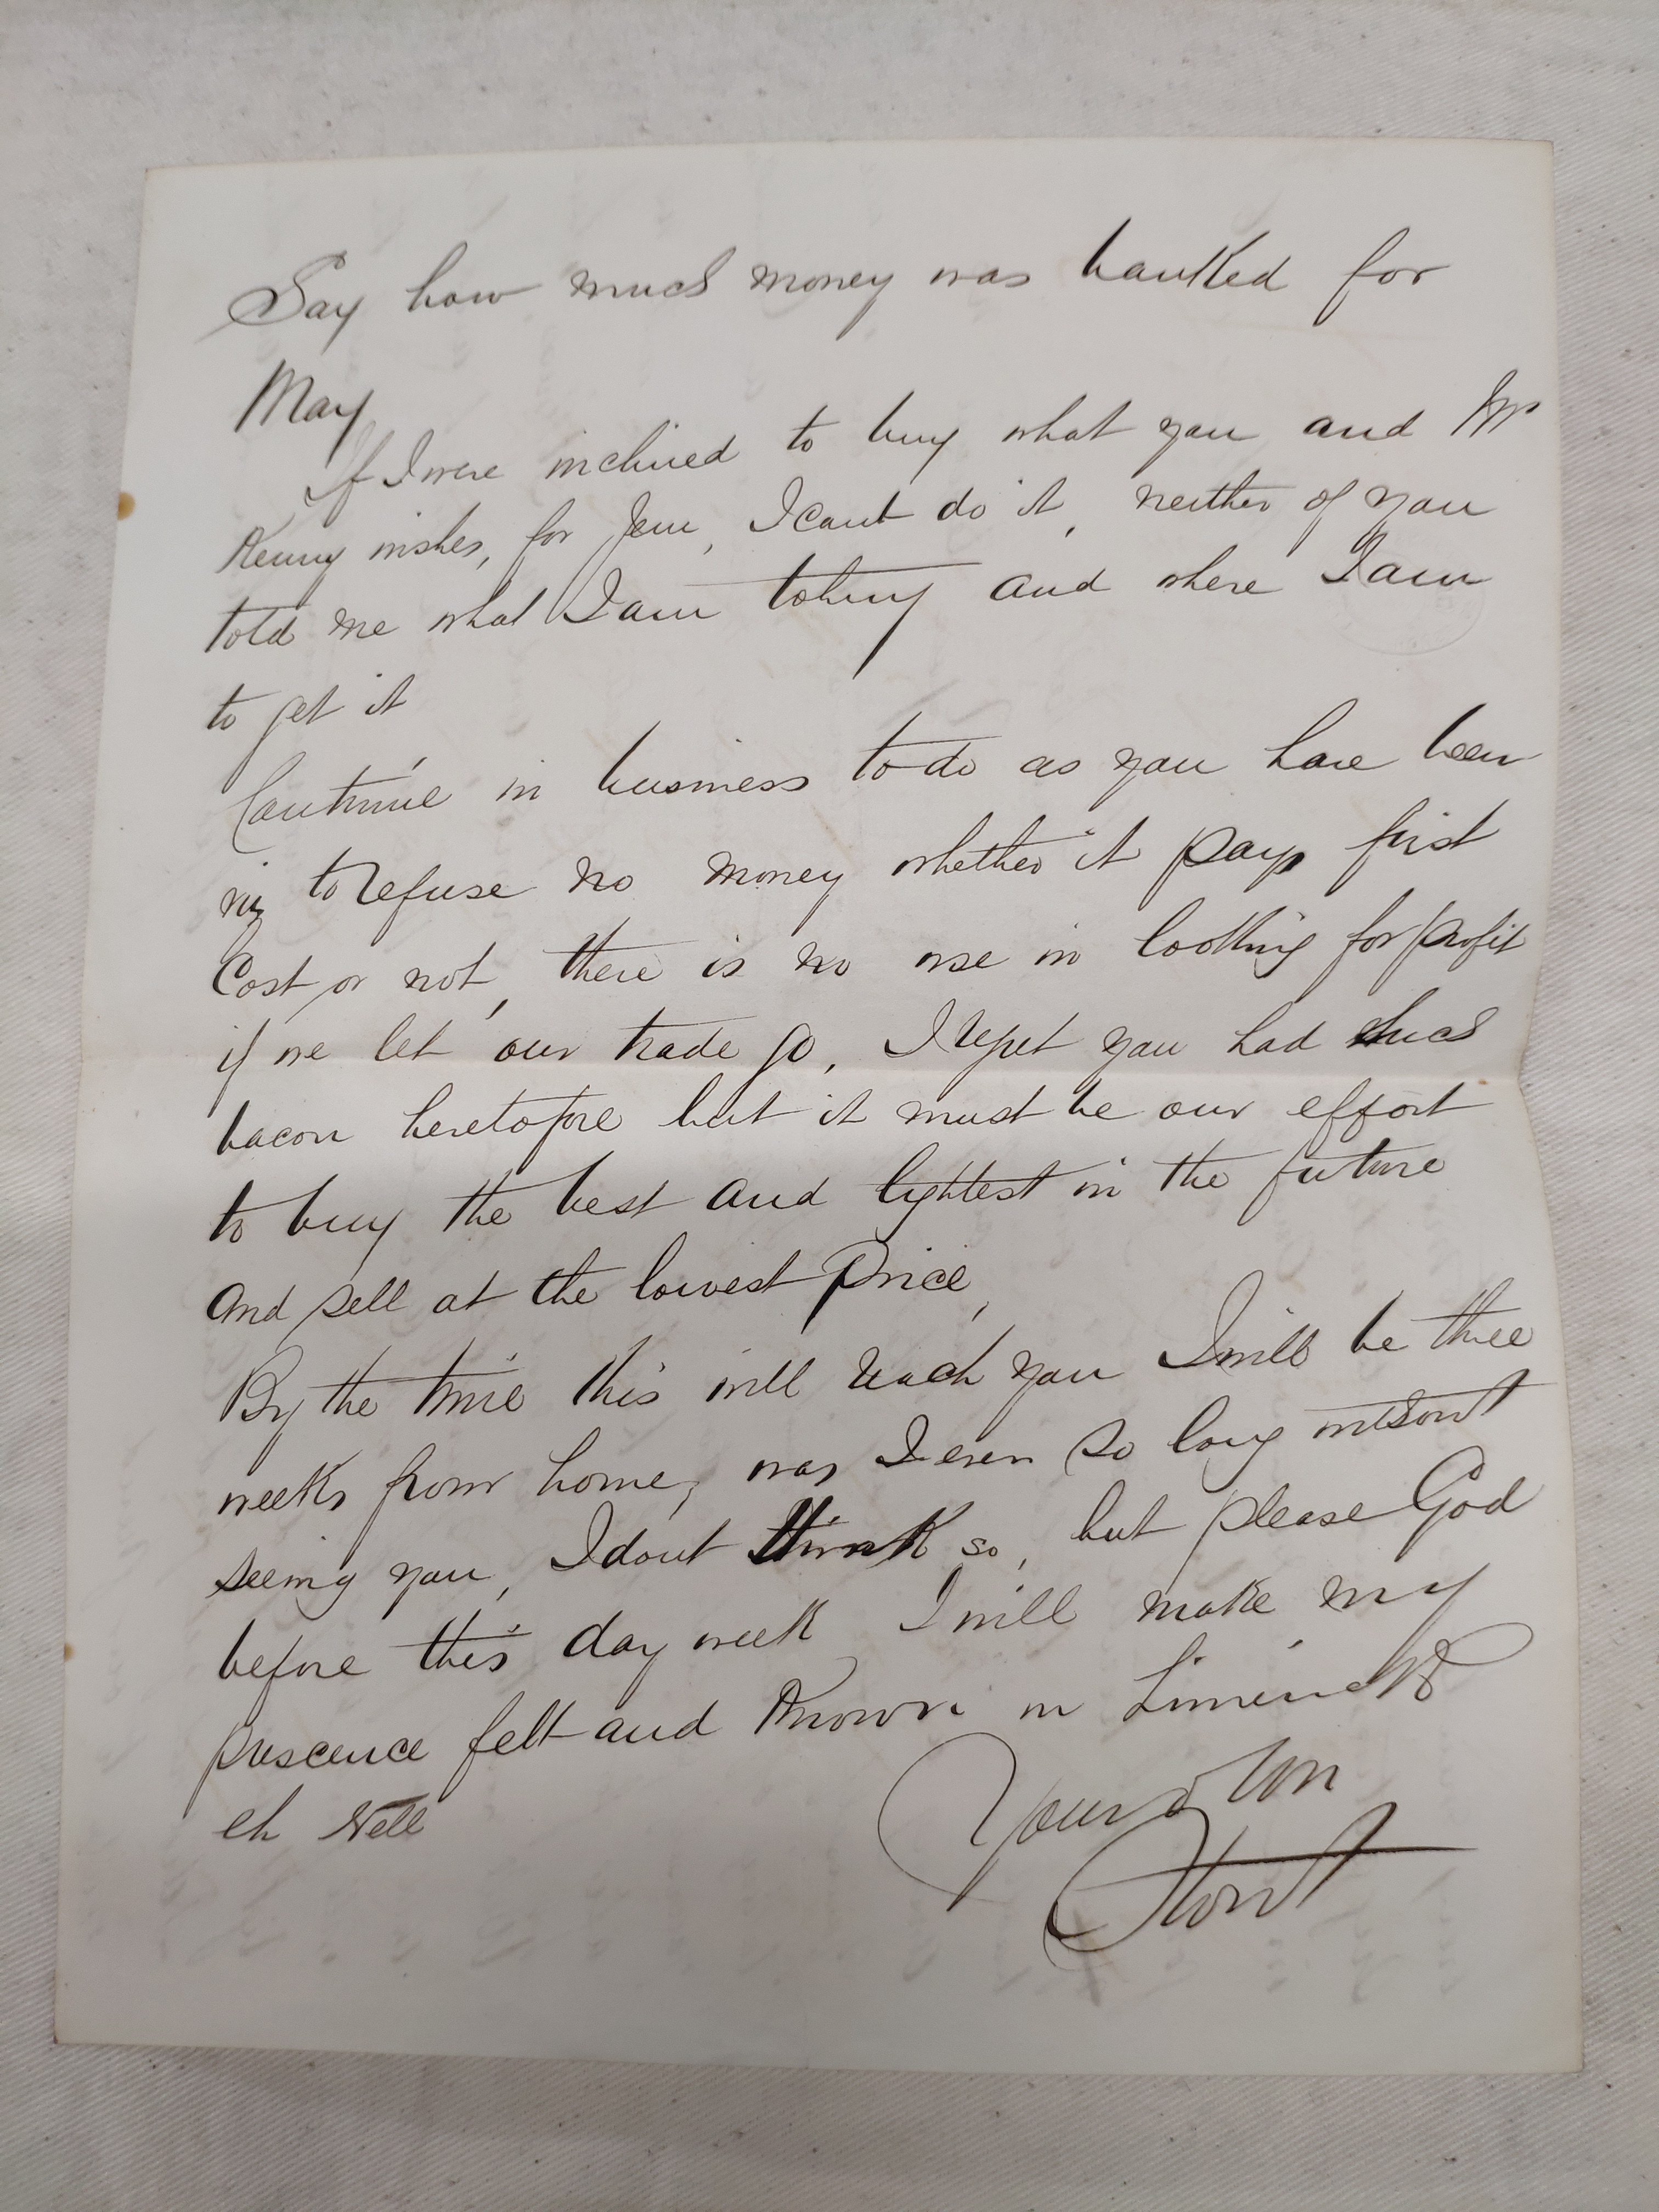 Say how much money was banked for
May
If I were inclined to buy what you and Mr
Kenny wishes, for Jem, I cant do it, neither of you
told me what I am to buy and where I am
to get it
Continue in business to do as you have been
viz to refuse no money whether it pays first
Cost or not, there is no use in looking for profit
if we let our trade go, I regret you had such
bacon heretofore but it must be our effort
to buy the best and lightest in the future
and sell at the lowest price,
By the time this will reach you I will be three
weeks from home, was I ever so long without
seeing you, I dont think so, but please God
before this day week I will make my
prescence felt and known in Limerick
eh Nell
Your own
Stort